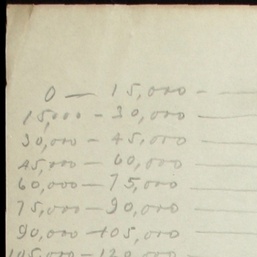 0 — 15,000 -
15,000 - 30,000
30,000 - 45,000
45,000 - 60,000
60,000 - 75,000
75,000 - 90,000
90,000 - 105,000
105,000 - 120,000